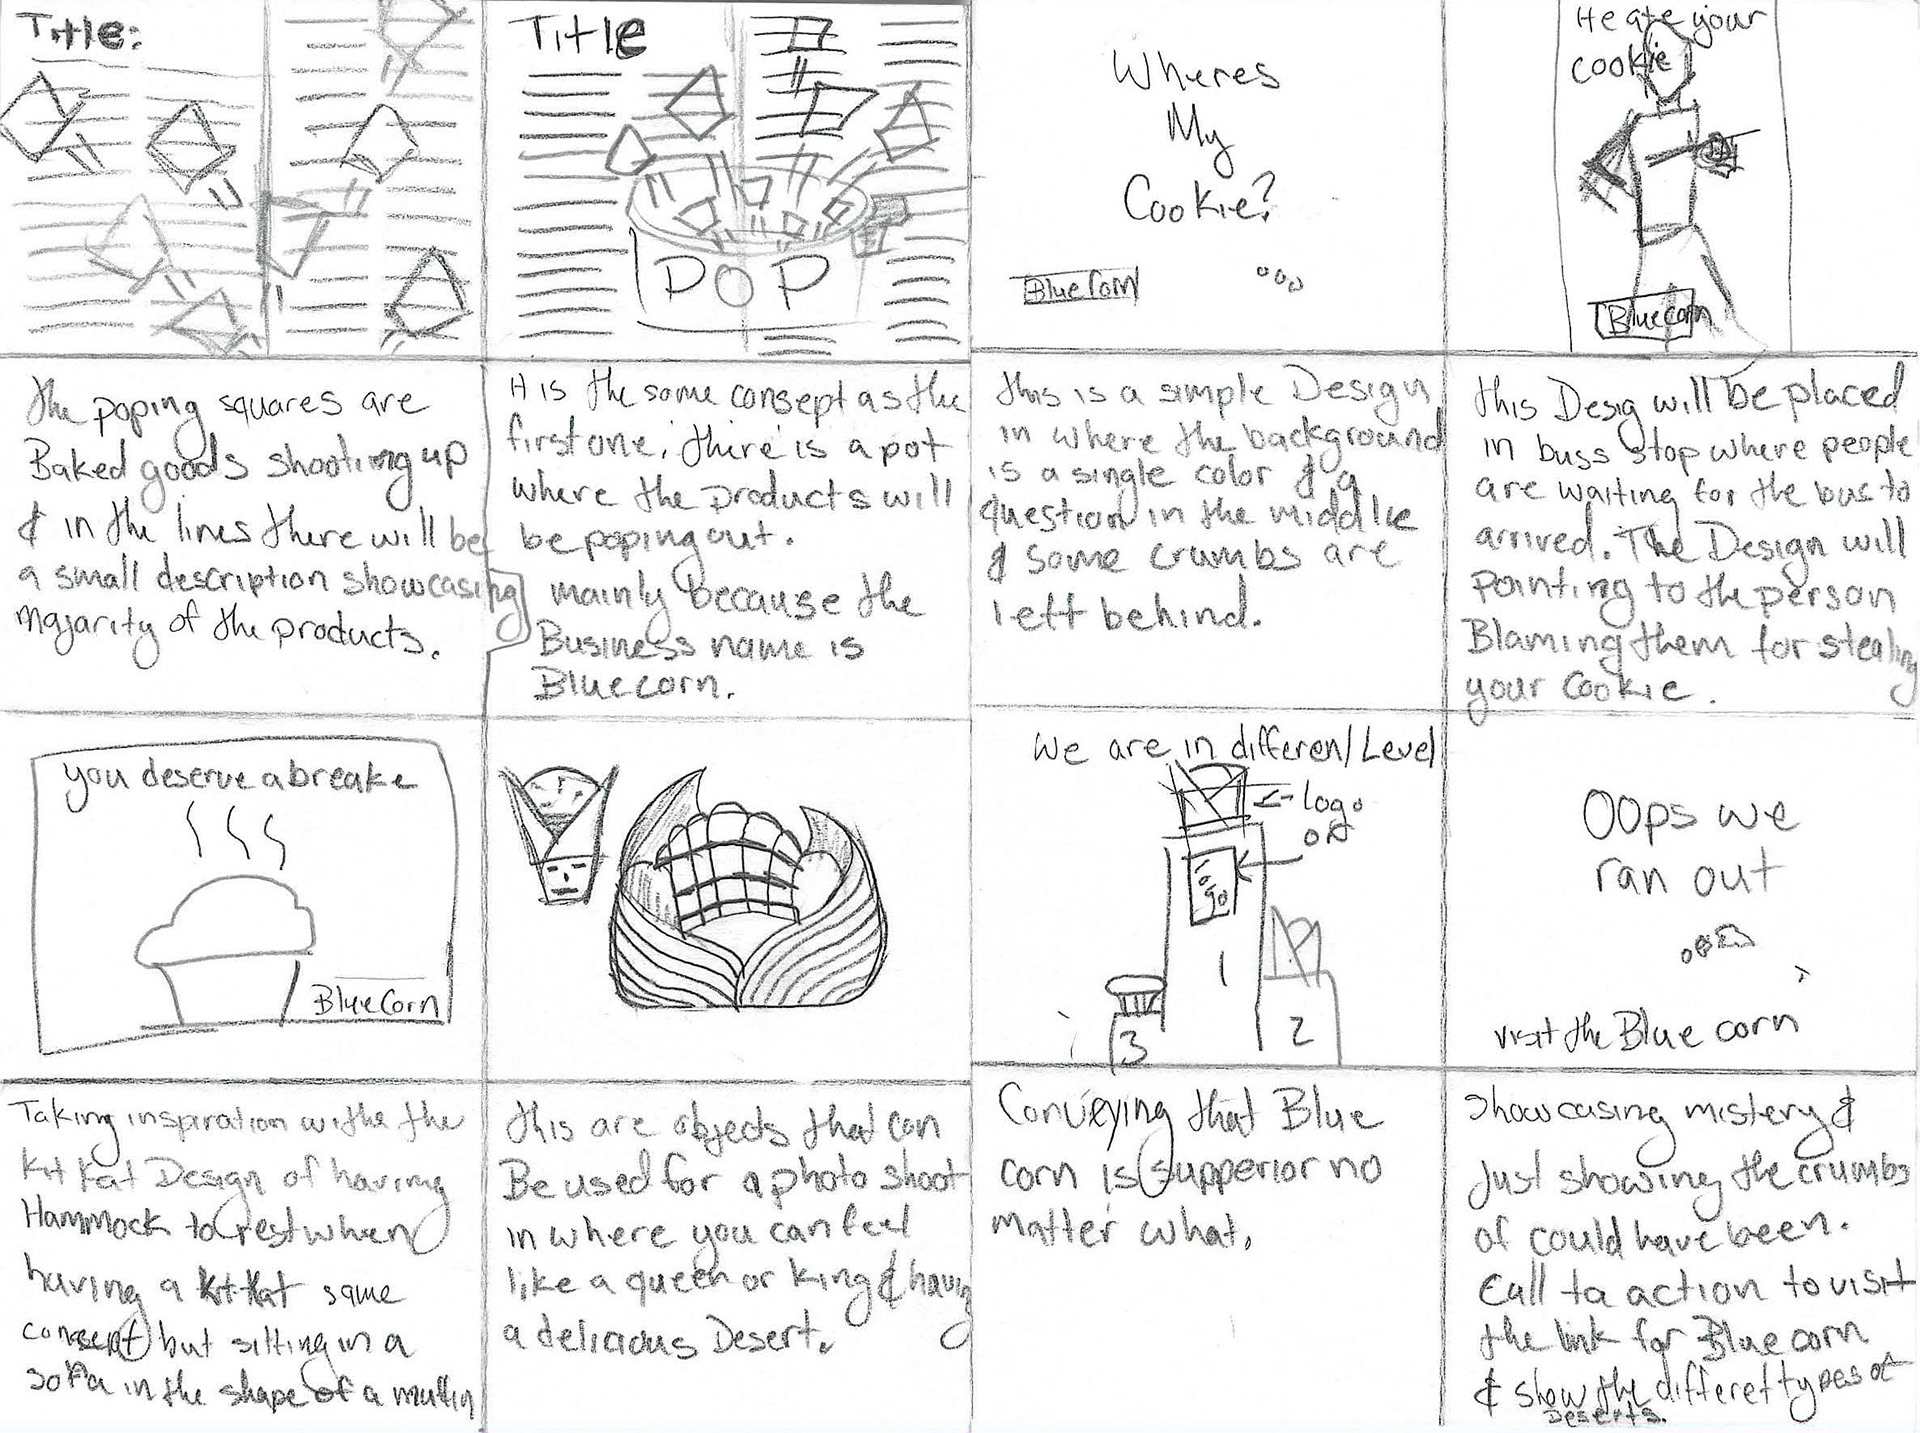 Title:
Title
POP
Wheres
My
Cookie?
Blue Corn
He ate your
cookie
Bluecorn
the poping squares are
Baked goods shooting up
& in the lines there will be
a small description showcasing
majarity of the products.
it is the same consept as the
first one. there is a pot
where the products will
be poping out.
mainly because the
Business name is
Bluecorn.
this is a simple Design
in where the background
is a single color & a
question in the middle
& some crumbs are
left behind.
this Desig will be placed
in buss stop where people
are waiting for the bus to
arrived. The Design will
Pointing to the person
Blaming them for stealing
your Cookie.
you deserve a breake
Blue Corn
We are in differen Level
logo
on
logo
1
2
3
Oops we
ran out
visit the Blue corn
Taking inspiration withe the
Kit Kat Design of having
Hammock to rest when
having a kitkat same
consept but sitting in a
sofa in the shape of a muffin
this are objects that can
Be used for a photo shoot
in where you can feel
like a queen or king & having
a delicious Desert.
Conveying that Blue
corn is supperior no
matter what.
Showcasing mistery &
Just showing the crumbs
of could have been.
Call ta action to visit
the link for Blue corn
& show the differet types of
Deserts.